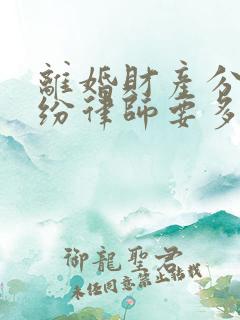 離婚財產分
紛律師要多
御龍聖君
未經同意禁止轉載